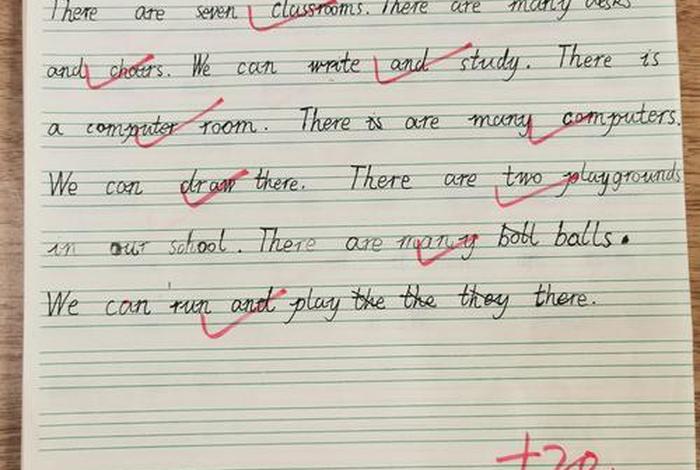 There are seven classrooms. There are many desks
and chairs. We can write and study. There is
a computer room. There is are many computers.
We can draw there. There are two playgrounds
in our school. There are many boll balls.
We can run and play the the they there.
+20